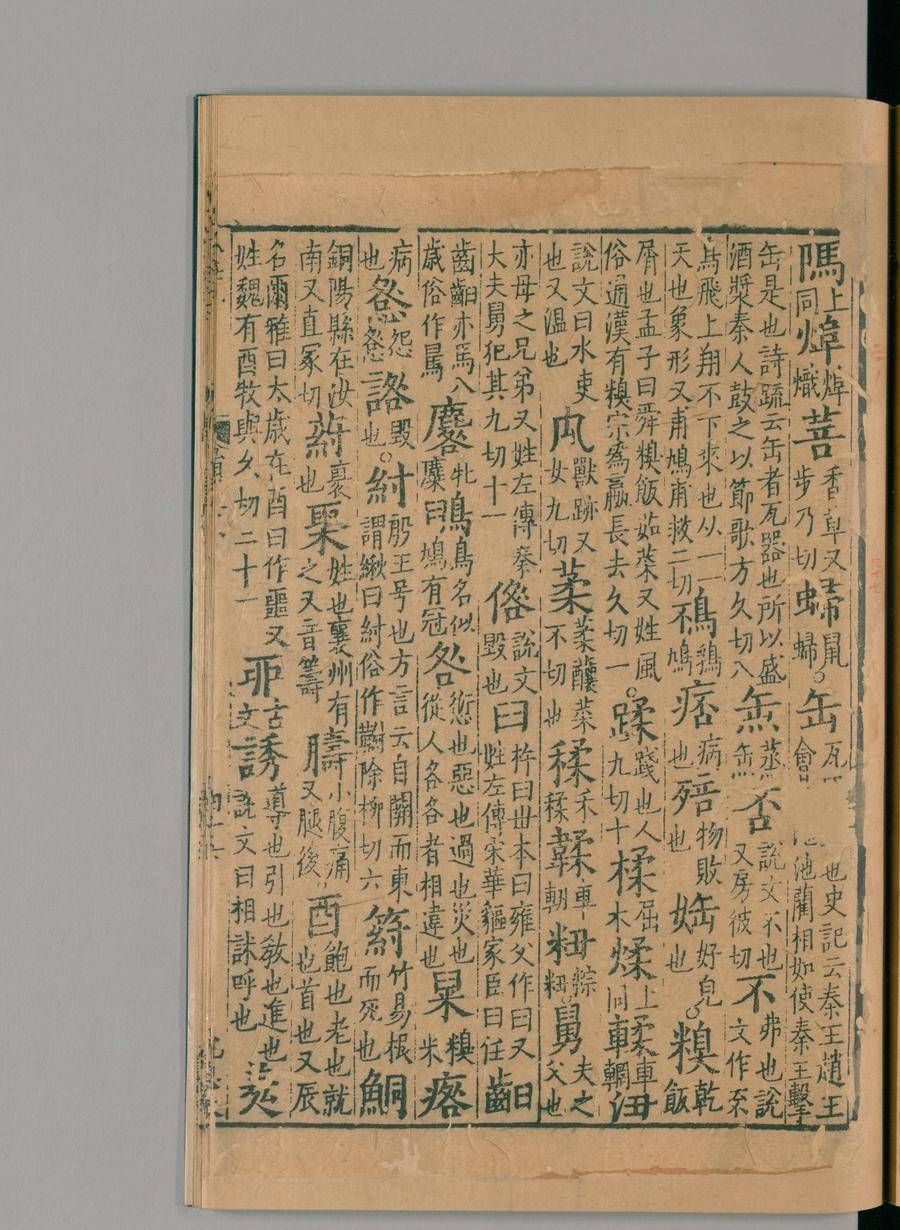 上同 熾 菩 香草又步乃切 鼠 缶 瓦 會 也史記云秦王趙王 池藺相如使秦王擊
缶是也詩疏云缶者瓦器也所以盛酒漿秦人鼓之以節歌方久切八 缹 蒸缹 否 說文不也又房彼切 不 弗也說文作
鳥飛上翔不下來也从一一天也象形又甫鳩甫救二切 鴀 鳩 痞 病也 物敗也 好皃 糗 乾飯
屑也孟子曰舜糗飯茹菜又姓風俗通漢有糗宗為嬴長去久切一 蹂 踐也人九切十 楺 屈木 煣 上同 輮 車輞
說文曰水吏也又溫也 禸 獸跡又女九切 葇 葇釀菜 不切也 禾 車 粈 粽粈 舅 夫之父也
亦母之兄弟又姓左傳秦大夫舅犯其九切十一 俢 說文毀也 臼 杵臼世本曰雍父作臼又姓左傳宋華貙家臣臼任 齨
齒齨亦馬八歲俗作 麔 牝麋 鳥名似鳩有冠 咎 愆也惡也過也災也從人各各者相違也 糗米
病也 慦 怨慦 毀也 紂 殷王号也方言云自關而東謂緧曰紂俗作 除柳切六 竹易根而死也 鮦
鮦陽縣在汝南又直冢切 葤 裹也 姓也襄州有之又音籌 小腹痛又腿後 酉 飽也老也就也首也又辰
名爾雅曰太歲在酉曰作噩又姓魏有酉牧與久切二十一 丣 古文 誘 導也引也教也進也說文曰相訹呼也 羑